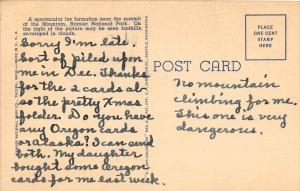 A spectacular ice formation near the summit
of the Mountain, Rainier National Park. On
the right of the picture may be seen foothills
enveloped in clouds.
Sorry I'm late.
Sort of piled upon
me in Dec. Thanks
for the 2 cards al-
so the pretty Xmas
folder. Do you have
any Oregon cards
or Alaska? I can send
both. My daughter
bought some Oregon
cards for me last week.
POST CARD
PLACE
ONE CENT
STAMP
HERE
No mountain
climbing for me.
This one is very
dangerous.